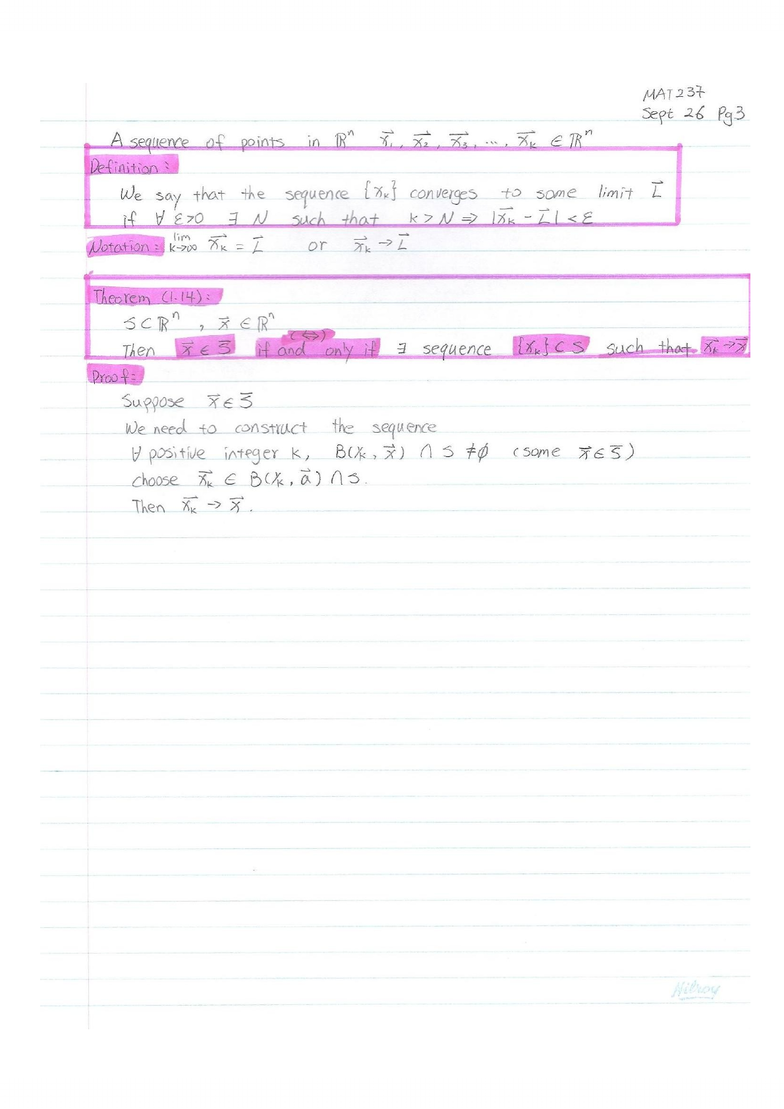 MAT237
Sept 26 Pg3
A sequence of points in ℝⁿ x⃗₁, x⃗₂, x⃗₃, ..., x⃗ₖ ∈ ℝⁿ
Definition:
We say that the sequence {x⃗ₖ} converges to some limit L⃗
if ∀ ε>0 ∃ N such that k > N ⇒ |x⃗ₖ - L⃗| < ε
Notation: lim k→∞ x⃗ₖ = L⃗ or x⃗ₖ → L⃗
Theorem (1.14):
S⊂ℝⁿ, x⃗ ∈ ℝⁿ
(⇔)
Then x⃗ ∈ S̅ if and only if ∃ sequence {x⃗ₖ} ⊂ S such that x⃗ₖ → x⃗
Proof:
Suppose x⃗ ∈ S̅
We need to construct the sequence
∀ positive integer k, B(1/k, x⃗) ∩ S ≠ ∅ (some x⃗ ∈ S̅)
choose x⃗ₖ ∈ B(1/k, a⃗) ∩ S.
Then x⃗ₖ → x⃗.